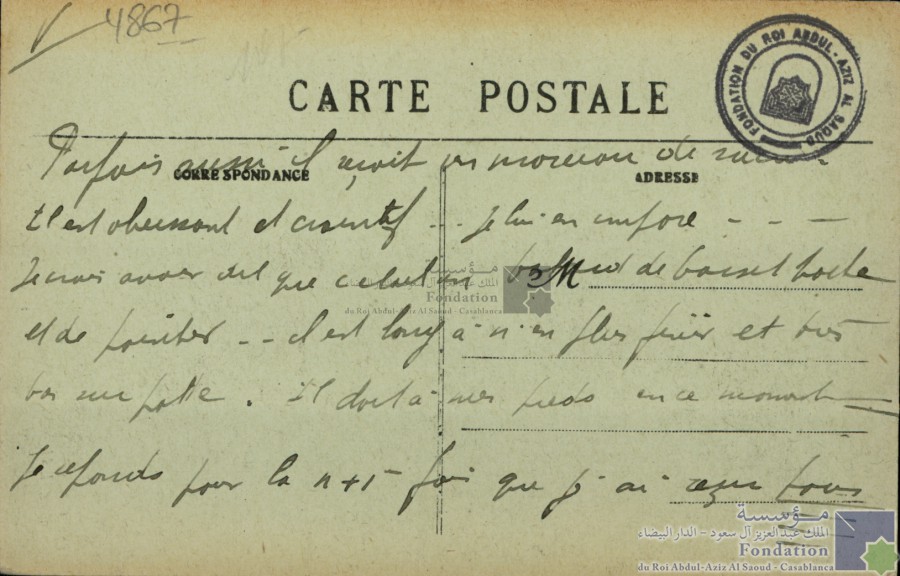 4867
FONDATION DU ROI ABDUL-AZIZ AL SAOUD
CARTE POSTALE
Parfois aussi il reçoit un morceau de sucre
CORRESPONDANCE
ADRESSE
Il est obeissant et craintif -- je lui en impose - - -
Je crois avoir dit que c'était un batard de basset boche
مؤسسة
الملك عبد العزيز آل سعود - الدار البيضاء
Fondation
du Roi Abdul-Aziz Al Saoud - Casablanca
et de pointer -- il est long à n'en plus finir et très
bas sur patte. Il dort à mes pieds en ce moment
Je réponds pour la n + 1 fois que j'ai reçu tous
مؤسسة
الملك عبد العزيز آل سعود - الدار البيضاء
Fondation
du Roi Abdul-Aziz Al Saoud - Casablanca